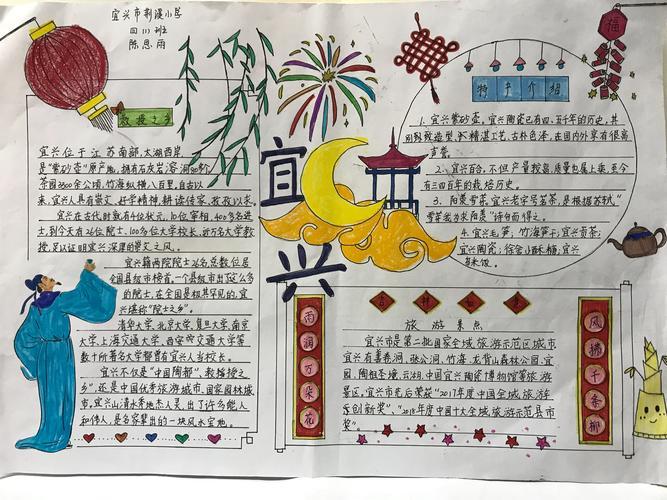 宜兴市荆溪小学
四(1)班
陈思雨
教授之乡
宜兴位于江苏南部,太湖西岸,
是"紫砂壶"原产地,拥有石灰岩溶洞80多个
茶园7500余公顷,竹海纵横八百里,自古以
来,宜兴人具有崇文、好学精神,耕读传家,孜孜以求。
宜兴在古代时就有4位状元,10位宰相,400多名进
士,到今天有26位院士、100多位大学校长、近万名大学教
授,足以证明宜兴深厚的崇文之风。
宜兴籍两院院士26名总数位居
全国县级市榜首。一个县级市出了这么多
的院士,在全国是极其罕见的,宜
兴堪称"院士之乡"。
清华大学、北京大学、复旦大学、南京
大学、上海交通大学、西安交通大学等
数十所著名大学都曾有宜兴人当校长。
宜兴不仅是"中国陶都"、教授之
乡",还是中国优秀旅游城市、国家园林城
市,宜兴山清水秀地杰人灵,出了许多能人
和伟人,是名家辈出的一块风水宝地。
宜
兴
福
特产介绍
1.宜兴紫砂壶,宜兴陶瓷已有四、五千年的历史,其
别致造型、精湛工艺、古朴色泽,在国内外享有很高
声誉。
2.宜兴百合,不但产量较高,质量也属上乘,至今
有三四百年的栽培历史。
3.阳羡雪芽,宜兴老字号名茶,是根据苏轼"
雪芽我为求阳羡"诗句而得之。
4.宜兴毛笋,竹海笋干;宜兴贡茶;
宜兴陶瓷;徐舍小酥糖;宜兴
乌米饭。
吉祥如意
旅游景点
雨润万朵花
风拂千条柳
宜兴市是第二批国家全域旅游示范区城市
宜兴有善卷洞、张公洞、竹海、龙背山森林公园,宜
园、陶祖圣境、云湖、中国宜兴陶瓷博物馆等旅游
景区。宜兴市先后荣获"2017年度中国全域旅游
乐创新奖"、"2018年度中国十大全域旅游示范县市
奖"。